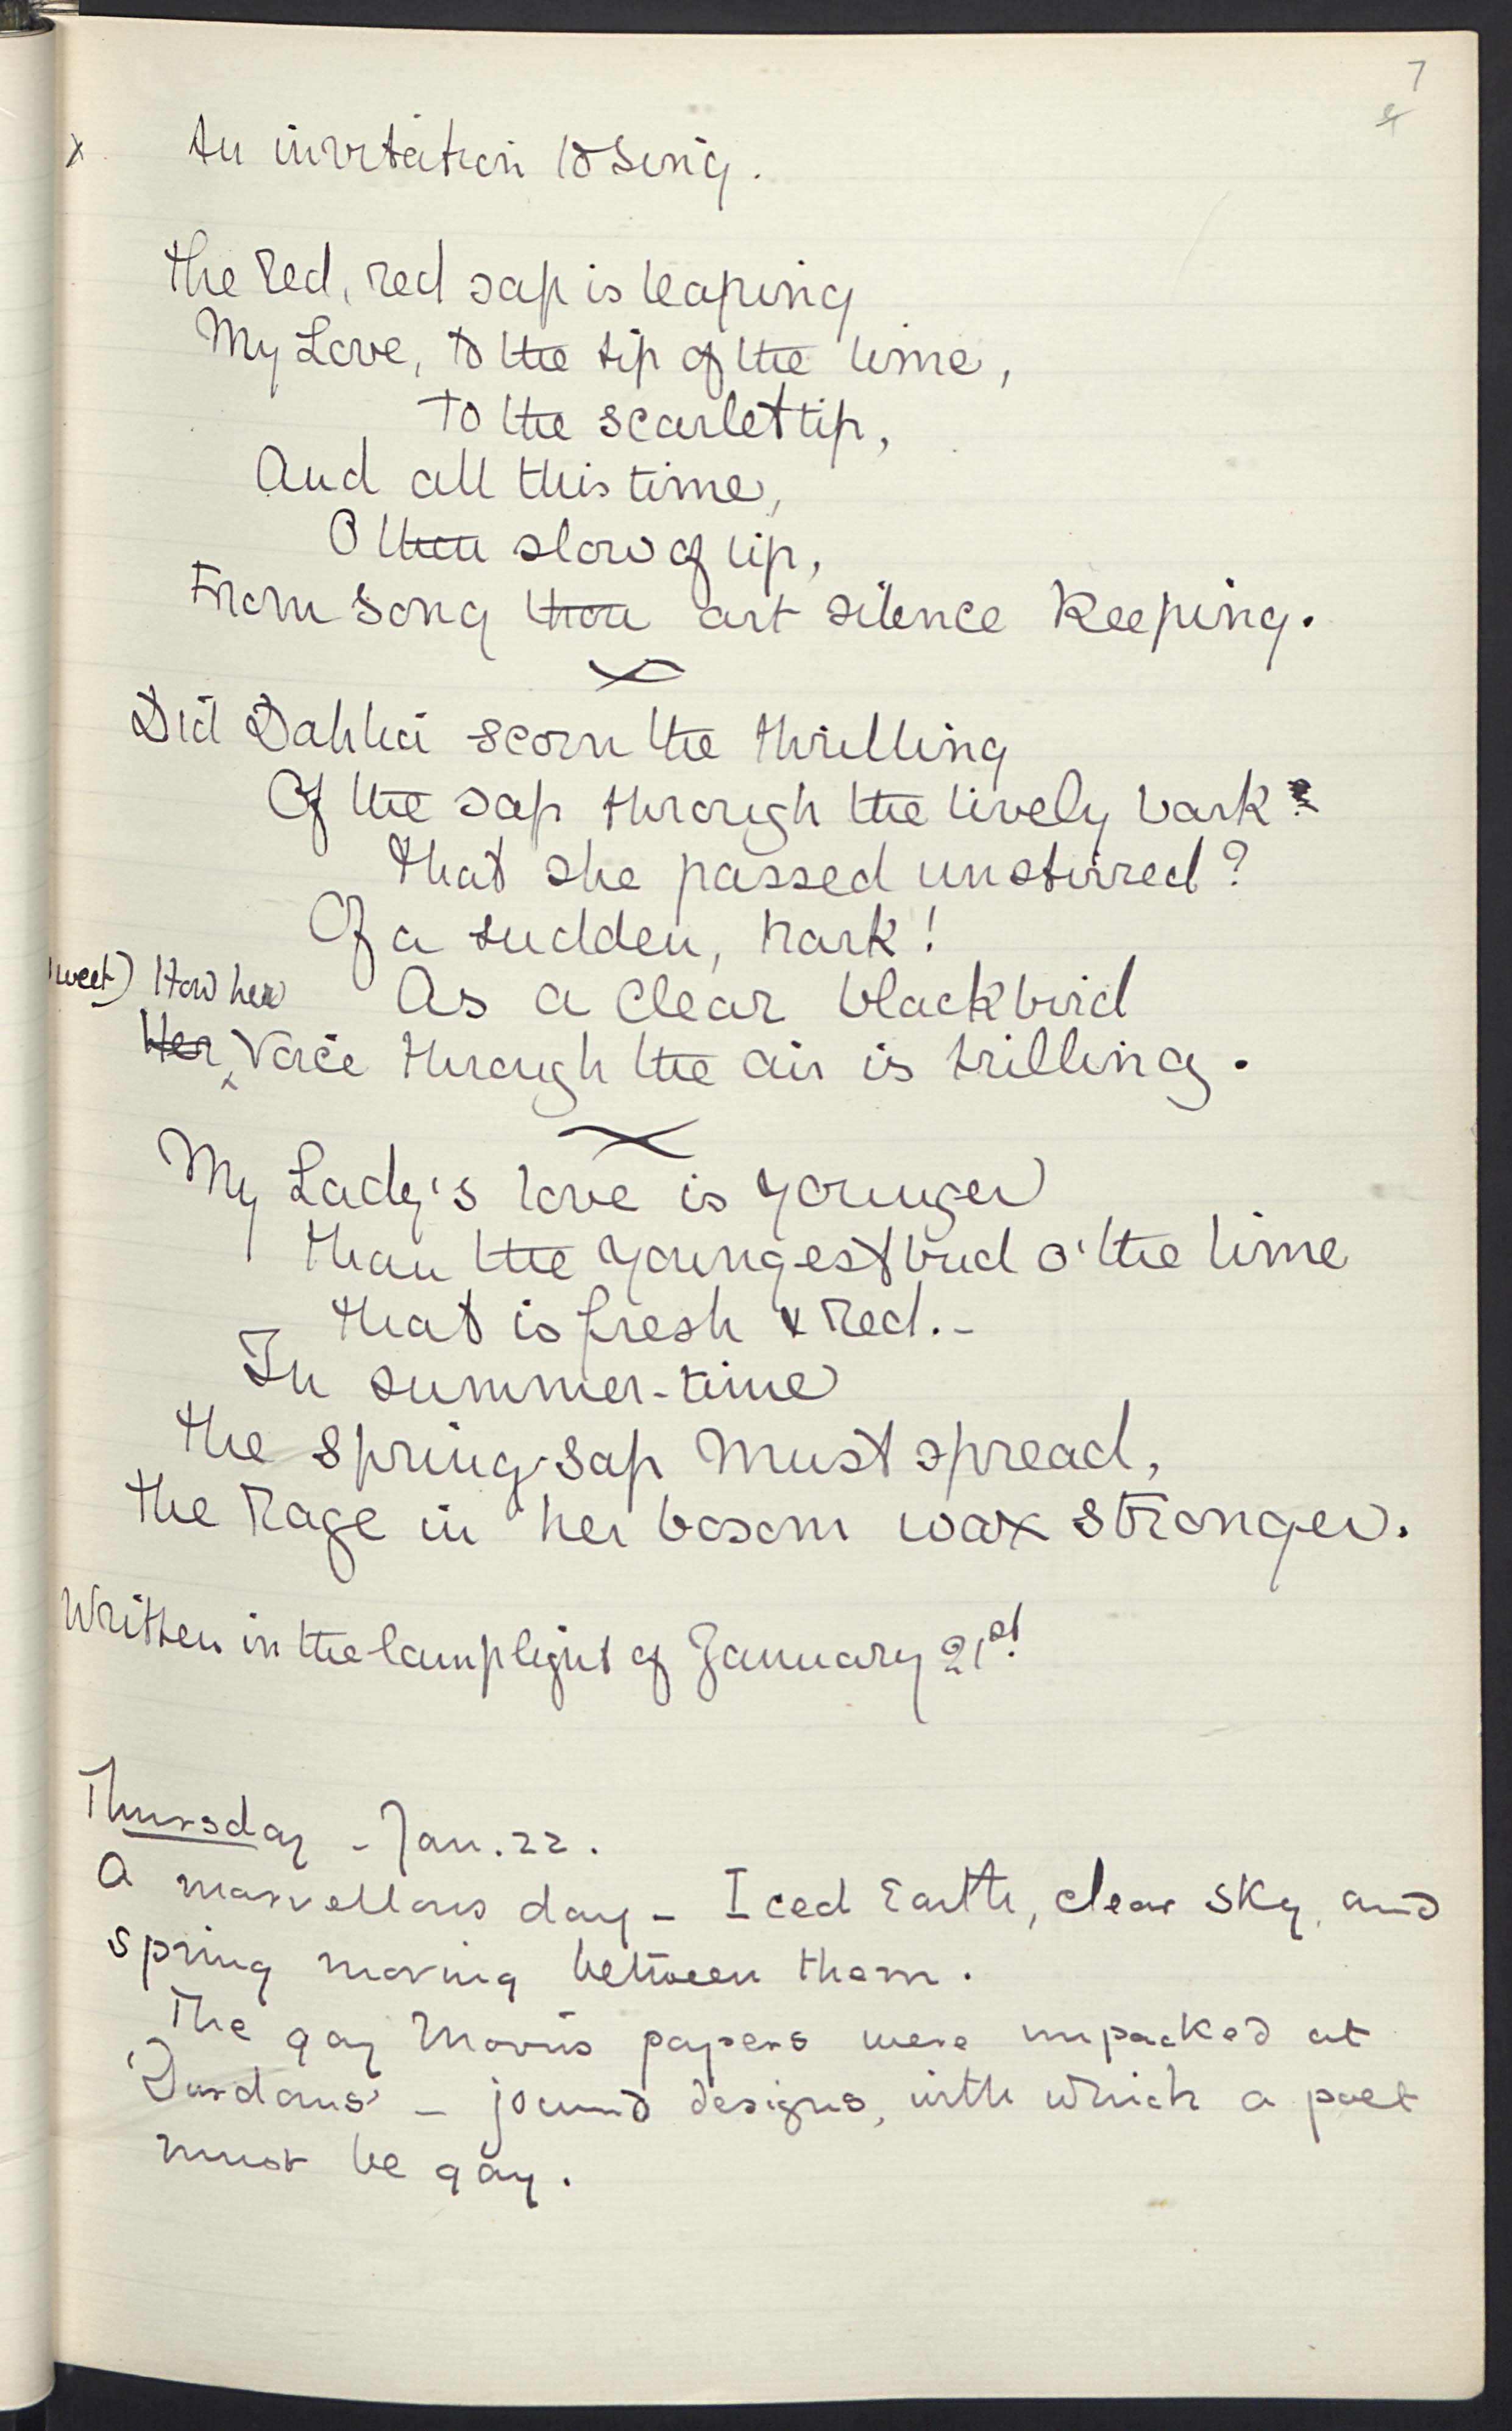 7
x An invitation to sing.
The Red, red sap is leaping
My Love, to the tip of the lime,
To the scarlet tip,
And all this time,
O thou slow of lip,
From song thou art silence keeping.
Did Dahlia scorn the thrilling
Of the sap through the lively bark
That she passed unstirred?
Of a sudden, hark!
(sweet) How her As a clear blackbird
Her Voice through the air is trilling.
My Lady's love is younger
Than the youngest bud o' the lime
That is fresh & red. -
In summer-time
The spring-sap must spread,
The Rage in her bosom wax stronger.
Written in the lamplight of January 21st.
Thursday - Jan. 22.
A marvellous day - Iced Earth, clear sky, and
spring moving between them.
The gay Morris papers were unpacked at
'Durdans' - jocund designs, with which a poet
must be gay.